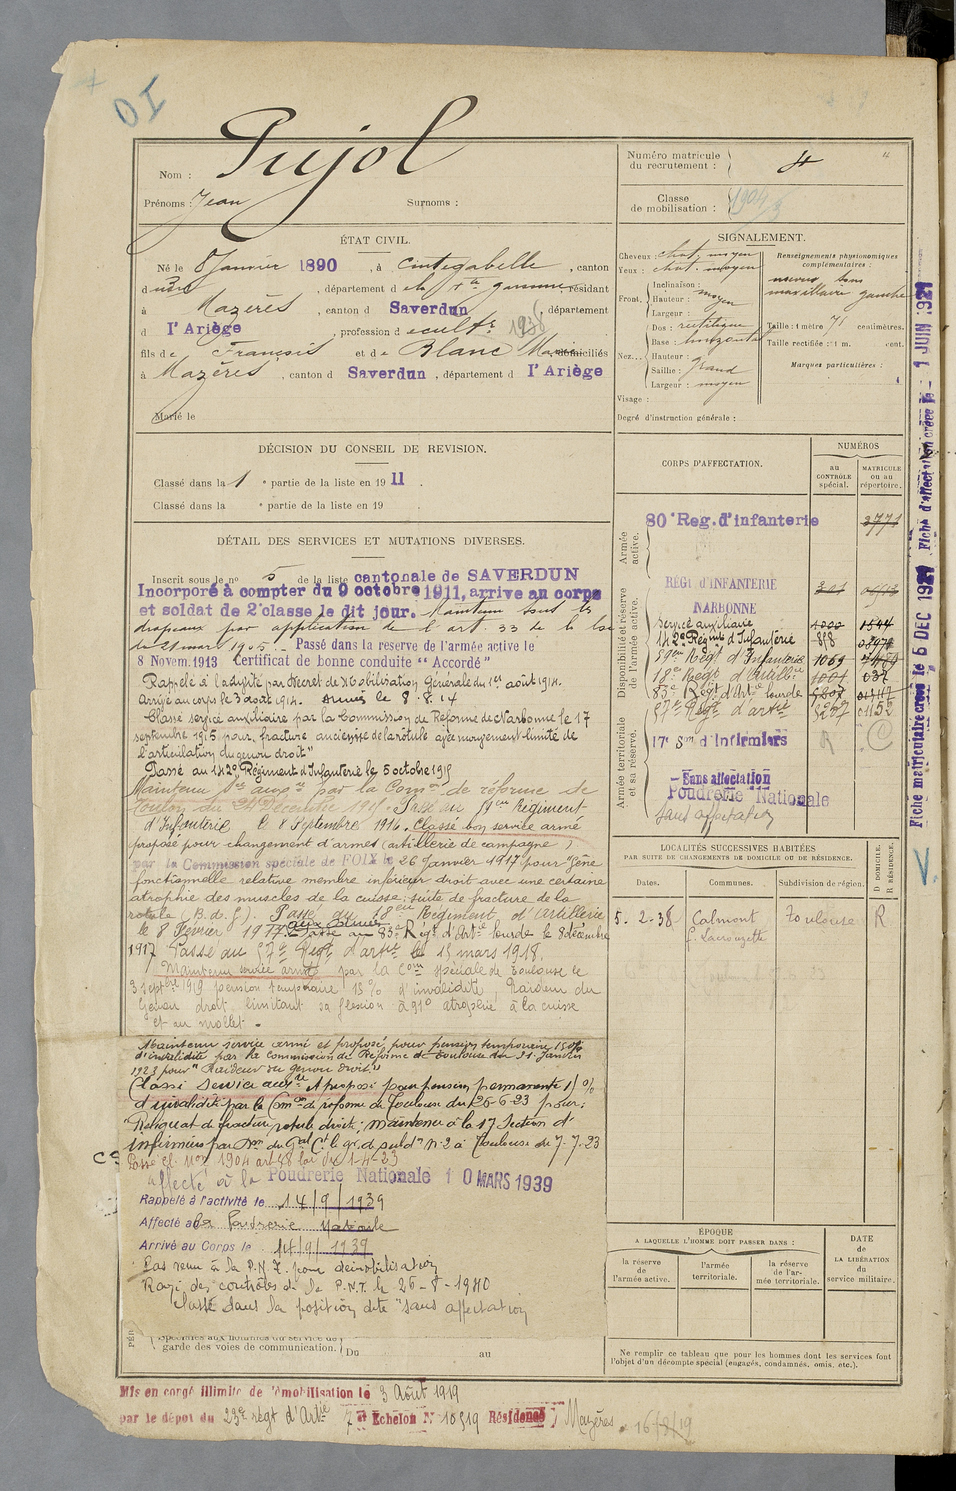 Nom : Pujol
Prénoms : Jean Surnoms :
Numéro matricule
du recrutement : 4
Classe
de mobilisation : 1904
ÉTAT CIVIL.
Né le 8 Janvier 1890, à Cintegabelle, canton
dudit, département de la Hte Garonne résidant
à Mazères, canton d Saverdun, département
d l'Ariège, profession d cultr 1938
fils de François et de Blanc Marie domiciliés
à Mazères, canton d Saverdun, département d l'Ariège
Marié le
SIGNALEMENT.
Cheveux : chat. moyen
Yeux : chat. moyen
Front.
Inclinaison :
Hauteur : moyen
Largeur :
Nez...
Dos : rectiligne
Base : horizontal
Hauteur :
Saillie : grand
Largeur : moyen
Visage :
Degré d'instruction générale :
Renseignements physionomiques
complémentaires :
maxillaire gauche
Taille : 1 mètre 71 centimètres.
Taille rectifiée : 1 m. cent.
Marques particulières :
DÉCISION DU CONSEIL DE REVISION.
Classé dans la 1 e partie de la liste en 1911.
Classé dans la e partie de la liste en 19 .
DÉTAIL DES SERVICES ET MUTATIONS DIVERSES.
Inscrit sous le n° 5 de la liste cantonale de SAVERDUN
Incorporé à compter du 9 octobre 1911, arrive au corps
et soldat de 2e classe le dit jour. Maintenu sous les
drapeaux par application de l'art 33 de la loi
du 21 mars 1905. - Passé dans la reserve de l'armée active le
8 Novem. 1913 Certificat de bonne conduite "Accordé"
Rappelé à l'activité par Décret de Mobilisation Générale du 1er août 1914.
Arrivé au corps le 3 août 1914. Armées le 8.8.14
Classé service auxiliaire par la Commission de Réforme de Narbonne le 17
septembre 1915 pour "fracture ancienne de la rotule avec mouvement limité de
l'articulation du genou droit"
Passé au 142e Régiment d'Infanterie le 5 octobre 1915
Maintenu sce aux. re par la Comon de réforme de
Toulon du Décembre 1915. Passé au 59eme Régiment
d'Infanterie le 8 Septembre 1916. Classé bon service armé
proposé pour changement d'armes (artillerie de campagne)
par la Commission spéciale de FOIX le 26 Janvier 1917 pour "Gêne
fonctionnelle relative membre inférieur droit avec une certaine
atrophie des muscles de la cuisse : suite de fracture de la
rotule (B.d.G). Passé au 18eme Régiment d'Artillerie
le 8 Février 1917. Passé au 83e Régt d'Artie lourde le 9 décembre
1917 Passé au 57e Régt d'artie le 15 mars 1918.
Maintenu service armé par la Com spéciale de Toulouse le
3 septbre 1919 pension temporaire 15% d'invalidité, Raideur du
Genou droit, limitant sa flexion à 91° atrophie à la cuisse
et au mollet.
Maintenu service armé et proposé pour pension temporaire 15%
d'invalidité par la Commission de Réforme de Toulouse du 31 Janvier
1923 pour "Raideur du genou droit."
Classé service auxre et proposé pour pension permanente 1 %
d'invalidité par la Comon de réforme de Toulouse du 26-6-23 pour :
"Reliquat de fracture rotule droite ; maintenu à la 17 Section d'
infirmiers par Don du Gal Ct le gr de subdon n° 2 à Toulouse du 7-7-23
Passé cl. 1904 art 58 loi du 1-4-23
affecté à la Poudrerie Nationale 10 MARS 1939
Rappelé à l'activité le 14/9/1939
Affecté à la Poudrerie Nationale
Arrivé au Corps le 14/9/1939
Pas venu à la P.N.T. pour démobilisation
Rayé des contrôles de la P.N.T. le 26-8-1940
Classé dans la position dite "sans affectation
garde des voies de communication. Du au
CORPS D'AFFECTATION.
NUMÉROS
au
CONTRÔLE
spécial.
MATRICULE
ou au
répertoire.
Armée
active.
80e Reg. d'infanterie 3771
Disponibilité et réserve
de l'armée active.
RÉGt D'INFANTERIE
NARBONNE
Service auxiliaire 1544
142e Régiment d'Infanterie 858
59eme Régt d'Infanterie 1069
18eme Régt d'Artillie 1001 037
83e Régt d'Artie lourde
57e Régt d'artie
Armée territoriale
et sa réserve.
17e Son d'Infirmiers R C
Sans affectation
Poudrerie Nationale
sans affectation
LOCALITÉS SUCCESSIVES HABITÉES
PAR SUITE DE CHANGEMENTS DE DOMICILE OU DE RÉSIDENCE.
Dates. Communes. Subdivision de région.
D DOMICILE.
R RÉSIDENCE.
5-2-38 Calmont Toulouse R
ÉPOQUE
A LAQUELLE L'HOMME DOIT PASSER DANS :
la réserve
de
l'armée active.
l'armée
territoriale.
la réserve
de l'ar-
mée territoriale.
DATE
de
LA LIBÉRATION
du
service militaire.
Ne remplir ce tableau que pour les hommes dont les services font
l'objet d'un décompte spécial (engagés, condamnés, omis, etc.).
Mis en congé illimité de démobilisation le 3 Août 1919
par le dépôt du 23e régt d'Artie 7e Echelon N° 10519 Résidence Mazères 16/8/19
Fiche matriculaire créée le 5 DEC 1921 Fiche d'affectation créée le - 1 JUIN 1921